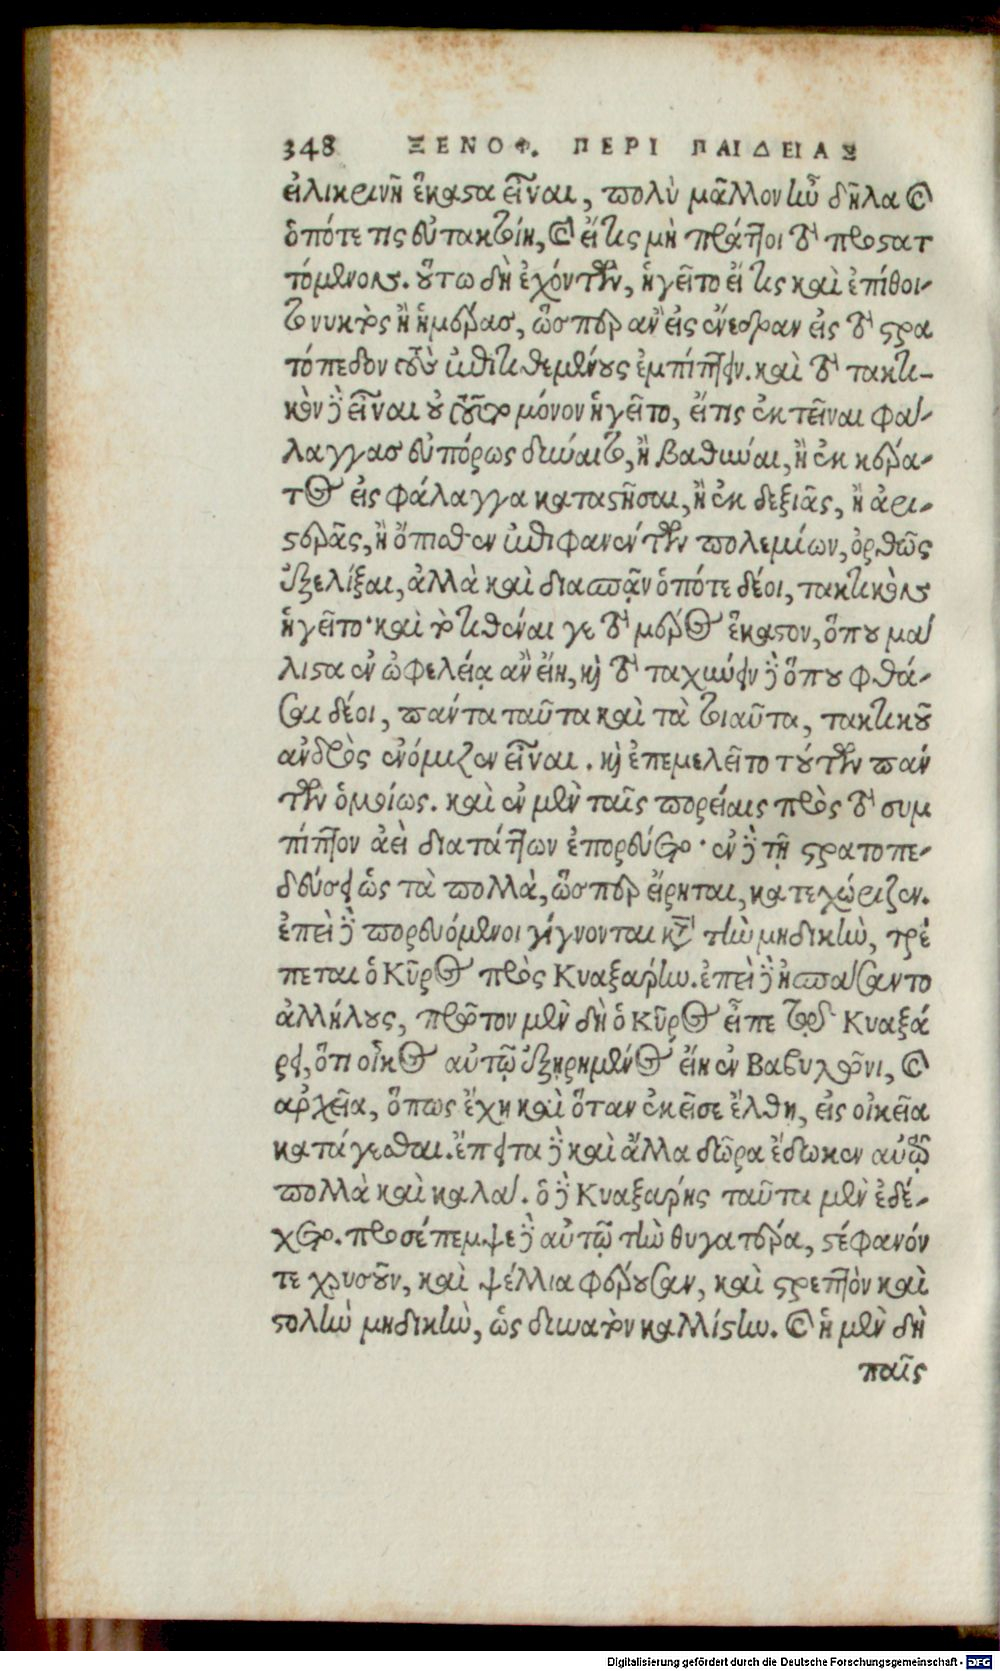 348 ΞΕΝΟΦ. ΠΕΡΙ ΠΑΙΔΕΙΑΣ
εἰλικρινῆ ἕκαστα εἶναι, πολὺ μᾶλλον ἦν δῆλα καὶ
ὁπότε τις εὐτακτοίη, καὶ εἴ τις μὴ πράττοι τὸ προστατ
τόμενον. οὕτω δὴ ἐχόντων, ἡγεῖτο εἴ τις καὶ ἐπίθοι-
το νυκτὸς ἢ ἡμέρας, ὥσπερ ἂν εἰς ἐνέδραν εἰς τὸ στρα
τόπεδον τοὺς ἐπιτιθεμένους ἐμπίπτειν. καὶ τὸ τακτι-
κὸν δὲ εἶναι οὐ τοῦτο μόνον ἡγεῖτο, εἴ τις ἐκτεῖναι φά-
λαγγας εὐπόρως δύναιτο, ἢ βαθῦναι, ἢ ἐκ κέρα-
τος εἰς φάλαγγα καταστῆσαι, ἢ ἐκ δεξιᾶς, ἢ ἀρι-
στερᾶς, ἢ ὄπισθεν ἐπιφανέντων πολεμίων, ὀρθῶς
ἐξελίξαι, ἀλλὰ καὶ διασπᾷν ὁπότε δέοι, τακτικὸν
ἡγεῖτο· καὶ τὸ τιθέναι γε τὸ μέρος ἕκαστον, ὅπου μά
λιστα ἐν ὠφελείᾳ ἂν εἴη, καὶ τὸ ταχύνειν δὲ ὅπου φθά-
σαι δέοι, πάντα ταῦτα καὶ τὰ τοιαῦτα, τακτικοῦ
ἀνδρὸς ἐνόμιζεν εἶναι. καὶ ἐπεμελεῖτο τούτων πάν
των ὁμοίως. καὶ ἐν μὲν ταῖς πορείαις πρὸς τὸ συμ
πίπτον ἀεὶ διατάττων ἐπορεύετο· ἐν δὲ τῇ στρατοπε-
δεύσει ὡς τὰ πολλὰ, ὥσπερ εἴρηται, κατεχώριζεν.
ἐπεὶ δὲ πορευόμενοι γίγνονται κατὰ τὴν μηδικὴν, τρέ
πεται ὁ Κῦρος πρὸς Κυαξάρην. ἐπεὶ δὲ ἠσπάσαντο
ἀλλήλους, πρῶτον μὲν δὴ ὁ Κῦρος εἶπε τῷ Κυαξά
ρει, ὅτι οἶκος αὐτῷ ἐξῃρημένος εἴη ἐν Βαβυλῶνι, καὶ
ἀρχεῖα, ὅπως ἔχῃ καὶ ὅταν ἐκεῖσε ἔλθῃ, εἰς οἰκεῖα
κατάγεσθαι. ἔπειτα δὲ καὶ ἄλλα δῶρα ἔδωκεν αὐτῷ
πολλὰ καὶ καλά. ὁ δὲ Κυαξάρης ταῦτα μὲν ἐδέ-
χετο. προσέπεμψε δὲ αὐτῷ τὴν θυγατέρα, στέφανόν
τε χρυσοῦν, καὶ ψέλλια φέρουσαν, καὶ στρεπτὸν καὶ
στολὴν μηδικὴν, ὡς δυνατὸν καλλίστην. καὶ ἡ μὲν δὴ
παῖς
Digitalisierung gefördert durch die Deutsche Forschungsgemeinschaft - DFG